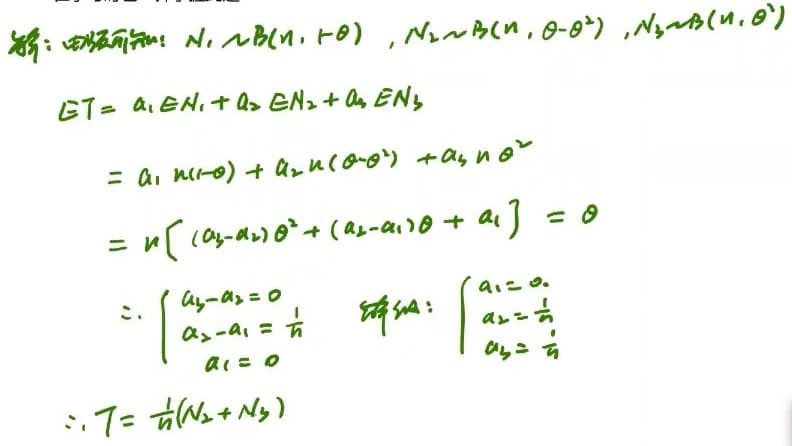 解:由题可知: N₁~B(n, 1-θ), N₂~B(n, θ-θ²), N₃~B(n, θ²)
ET = a₁EN₁ + a₂EN₂ + a₃EN₃
= a₁n(1-θ) + a₂n(θ-θ²) + a₃nθ²
= n[(a₃-a₂)θ² + (a₂-a₁)θ + a₁] = θ
∴ { a₃-a₂=0 解得: { a₁=0.
a₂-a₁ = 1/n a₂ = 1/n
a₁ = 0 a₃ = 1/n
∴ T = 1/n(N₂+N₃)